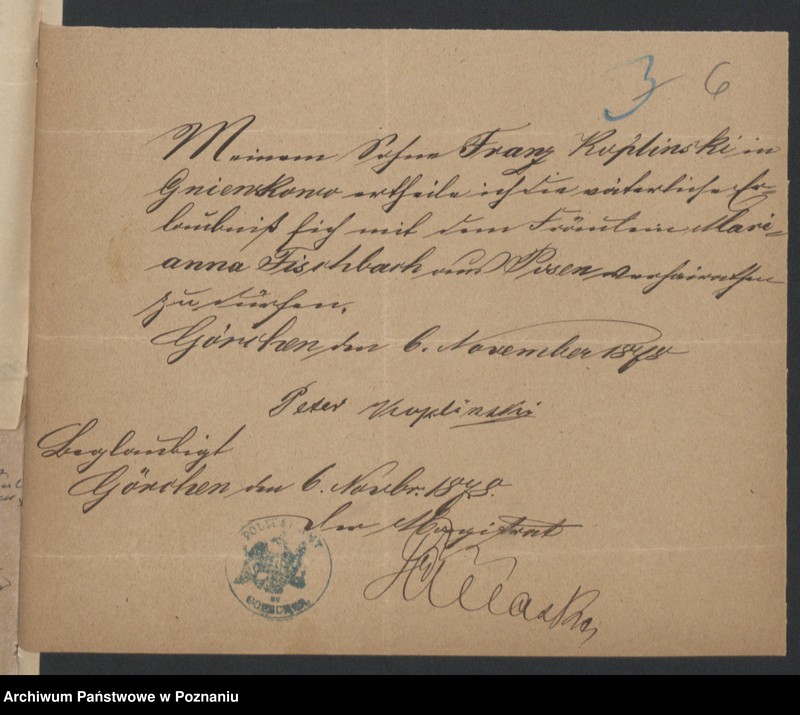 3 6
Meinem Sohne Franz Koplinski in
Gnienkowo ertheile ich die väterliche Er-
laubniß sich mit dem Fräulein Mari-
anna Fischbach aus Posen verheirathen
zu dürfen.
Görchen den 6. November 1878
Peter Koplinski
Beglaubigt
Görchen den 6. Novbr. 1878.
Der Magistrat
POLICEI AMT
Archiwum Państwowe w Poznaniu